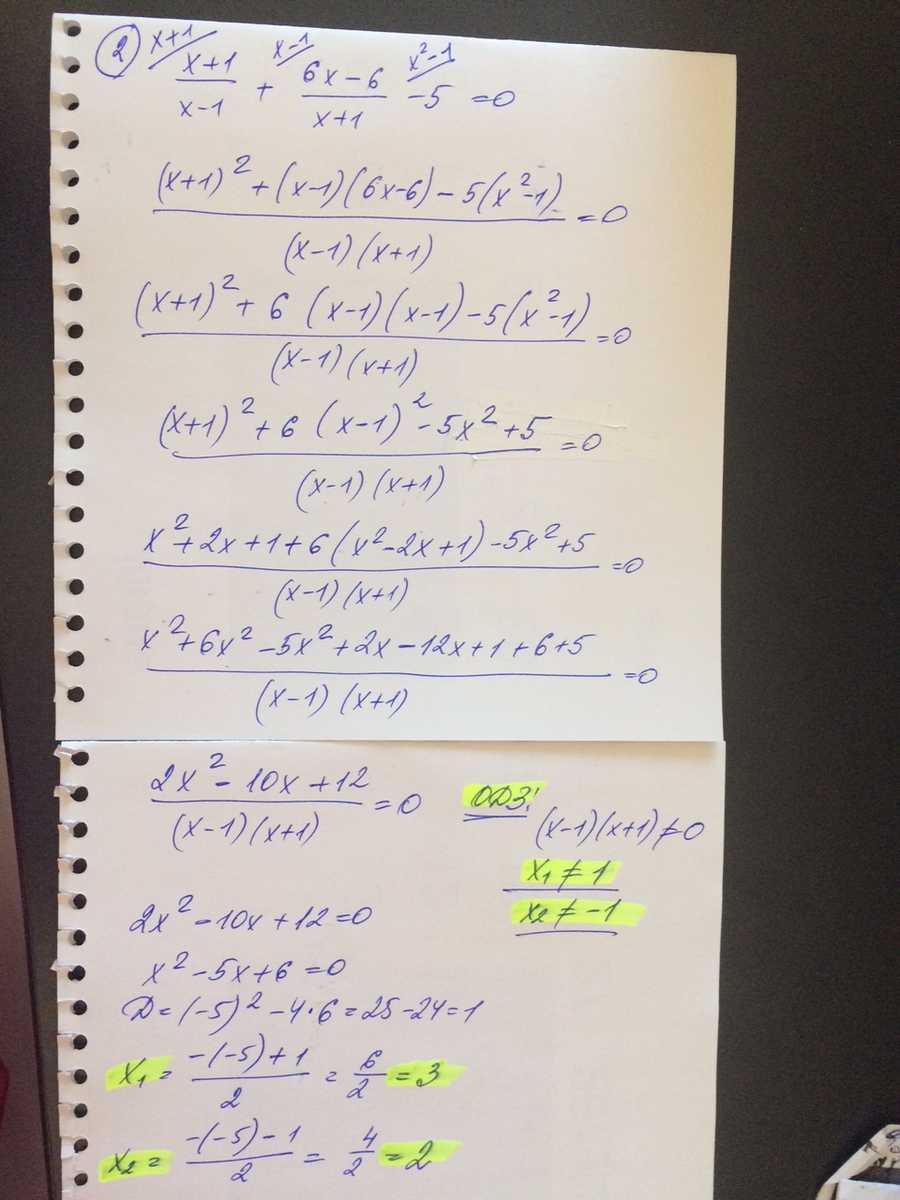 ② x+1 x-1 x²-1
(x+1)/(x-1) + (6x-6)/(x+1) -5 =0
((x+1)² + (x-1)(6x-6) - 5(x²-1))/((x-1)(x+1)) =0
((x+1)² + 6 (x-1)(x-1) - 5(x²-1))/((x-1)(x+1)) =0
((x+1)² + 6 (x-1)² - 5x² + 5)/((x-1)(x+1)) =0
(x² + 2x + 1 + 6(x² - 2x + 1) - 5x² + 5)/((x-1)(x+1)) =0
(x² + 6x² - 5x² + 2x - 12x + 1 + 6 + 5)/((x-1)(x+1)) =0
(2x² - 10x + 12)/((x-1)(x+1)) = 0
ОДЗ!
(x-1)(x+1) ≠ 0
x₁ ≠ 1
x₂ ≠ -1
2x² - 10x + 12 = 0
x² - 5x + 6 = 0
D = (-5)² - 4·6 = 25 - 24 = 1
x₁ = (-(-5) + 1)/2 = 6/2 = 3
x₂ = (-(-5) - 1)/2 = 4/2 = 2